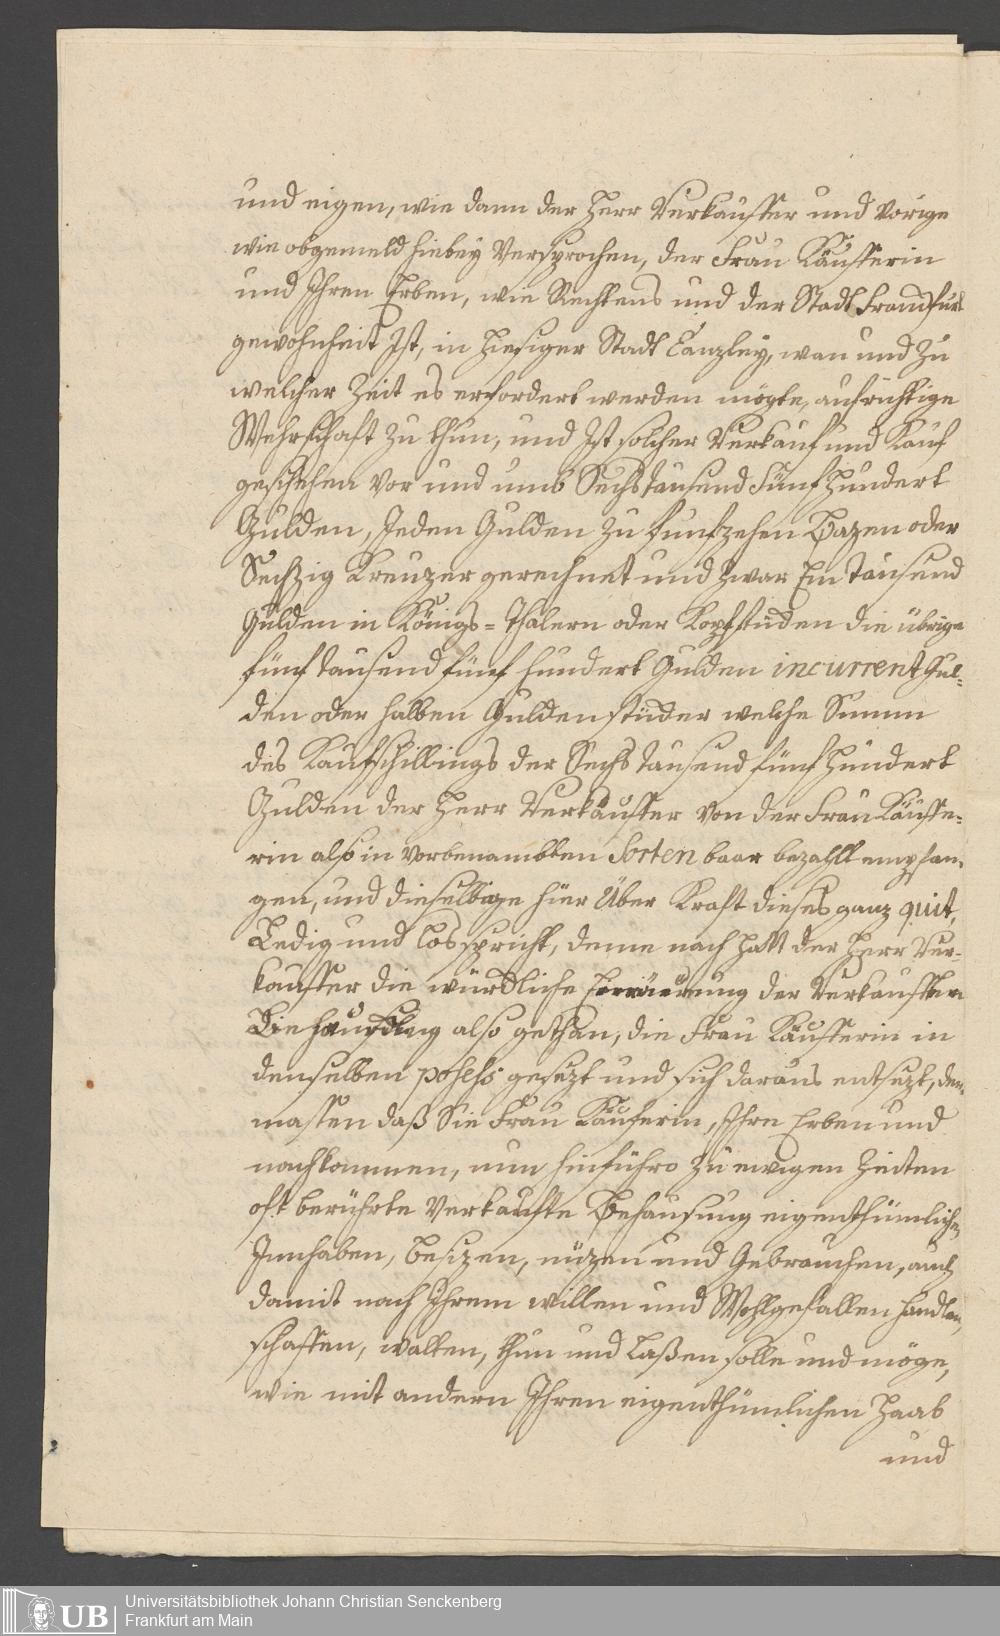 und eigen, wie dann der Herr Verkäuffer und Vorige
wie obgemeld hiebey Versprochen, der Frau Käufferin
und Ihren Erben, wie Rechtens und der Stadt Franckfurt
gewohnheit Ist, in hiesiger Stadt Canzley, wan und zu
welcher Zeit es erfordert werden mögte, aufrichtige
Wehrschaft zu thun, und Ist solcher Verkauf und Kauf
geschehen vor und umb Sechstausend Fünfhundert
Gulden, Jeden Gulden zu funfzehen Bazen oder
Sechzig Kreuzer gerechnet und zwar Ein Tausend
Gulden in Königs-Thalern oder Kopfstücken die übrige
fünf tausend fünf hundert Gulden in current Gul-
den oder halben Guldenstücker welche Summ
des Kaufschillings der Sechs Tausend fünf hundert
Gulden der Herr Verkäuffer von der Frau Käuffe-
rin also in vorbenambten Sorten baar bezahlt empfan-
gen, und dieselbige hier Über Kraft dieses ganz quit,
Ledig und losspricht, deme nach hatt der Herr Ver-
kauffer die würckliche Einräumung der Verkaufften
Behausung also gethan, die Frau Käufferin in
denselben possess gesezt und sich daraus entsezt, der-
massen daß Sie Frau Käuferin, Ihre Erben und
nachkommen, nun hinführo zu ewigen Zeiten
oft berührte Verkaufte Behausung eigenthümlichen
Innhaben, besizen, nüzen und Gebrauchen, auch
damit nach Ihrem willen und Wohlgefallen handlen,
schaffen, walten, thun und Laßen solle und möge,
wie mit andern Ihren eigenthümlichen Haab
und
Universitätsbibliothek Johann Christian Senckenberg
Frankfurt am Main
UB